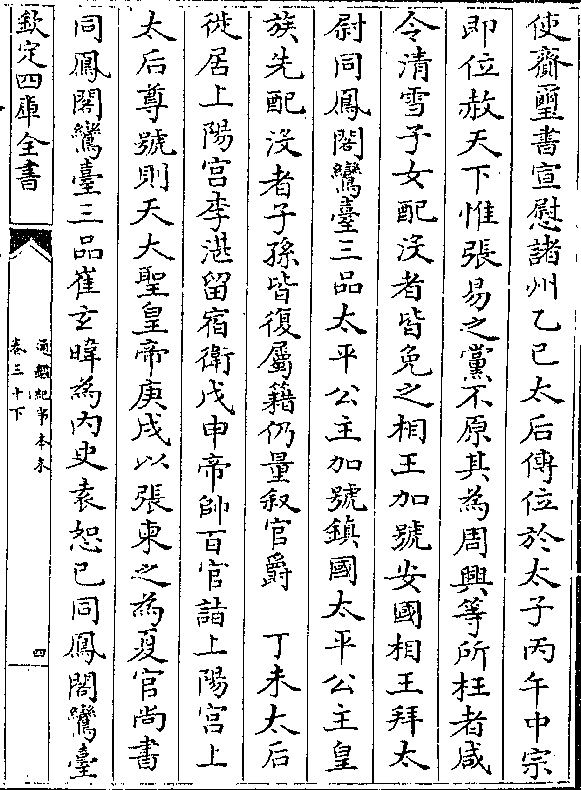 使齎璽書宣慰諸州乙巳太后傳位於太子丙午中宗
即位赦天下惟張易之黨不原其為周興等所枉者咸
令清雪子女配没者皆免之相王加號安國相王拜太
尉同鳳閣鸞臺三品太平公主加號鎮國太平公主皇
族先配没者子孫皆復屬籍仍量叙官爵　丁未太后
徙居上陽宫李湛留宿衛戊申帝帥百官詣上陽宫上
太后尊號則天大聖皇帝庚戌以張柬之為夏官尚書
同鳳閣鸞臺三品崔玄暐為内史袁恕已同鳳閣鸞臺
欽定四庫全書
通鑑紀事本末
卷三十下
四